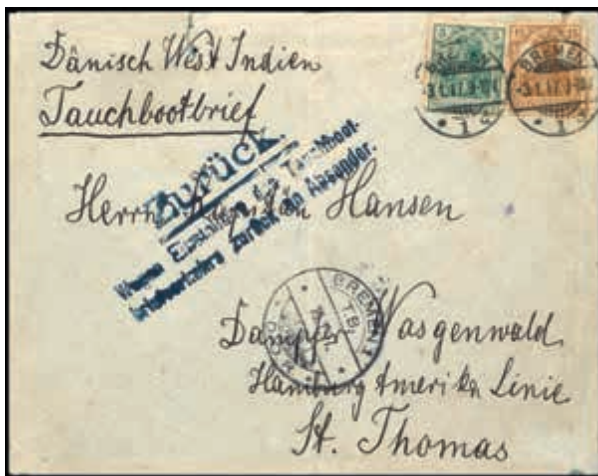 Dänisch West Indien
Tauchbootbrief
BREMEN
3.1.17.
BREMEN
3.1.17.
Zurück.
Wegen Einstellung d.
Tauchboot-
briefverkehrs zurück an Absender.
Herrn Kapitän Hansen
BREMEN
T.B.
Dampfer Wasgenwald
Hamburg Amerika Linie
St. Thomas